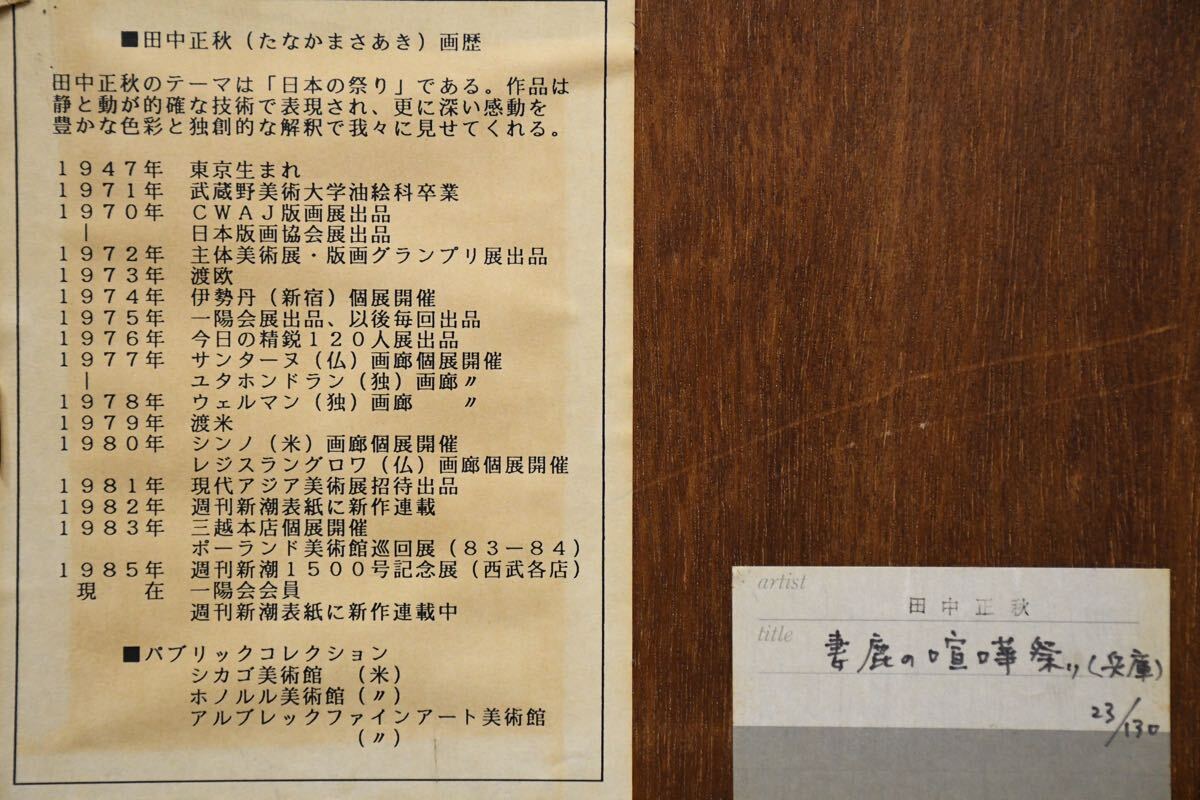 ■田中正秋（たなかまさあき）画歴
田中正秋のテーマは「日本の祭り」である。作品は
静と動が的確な技術で表現され、更に深い感動を
豊かな色彩と独創的な解釈で我々に見せてくれる。
１９４７年　東京生まれ
１９７１年　武蔵野美術大学油絵科卒業
１９７０年　ＣＷＡＪ版画展出品
｜　日本版画協会展出品
１９７２年　主体美術展・版画グランプリ展出品
１９７３年　渡欧
１９７４年　伊勢丹（新宿）個展開催
１９７５年　一陽会展出品、以後毎回出品
１９７６年　今日の精鋭１２０人展出品
１９７７年　サンターヌ（仏）画廊個展開催
｜　ユタホンドラン（独）画廊〃
１９７８年　ウェルマン（独）画廊　〃
１９７９年　渡米
１９８０年　シンノ（米）画廊個展開催
レジスラングロワ（仏）画廊個展開催
１９８１年　現代アジア美術展招待出品
１９８２年　週刊新潮表紙に新作連載
１９８３年　三越本店個展開催
ポーランド美術館巡回展（８３－８４）
１９８５年　週刊新潮１５００号記念展（西武各店）
現　在　一陽会会員
週刊新潮表紙に新作連載中
■パブリックコレクション
シカゴ美術館　（米）
ホノルル美術館（〃）
アルブレックファインアート美術館
（〃）
artist
田中正秋
title
妻鹿の喧嘩祭り（兵庫）
23/130